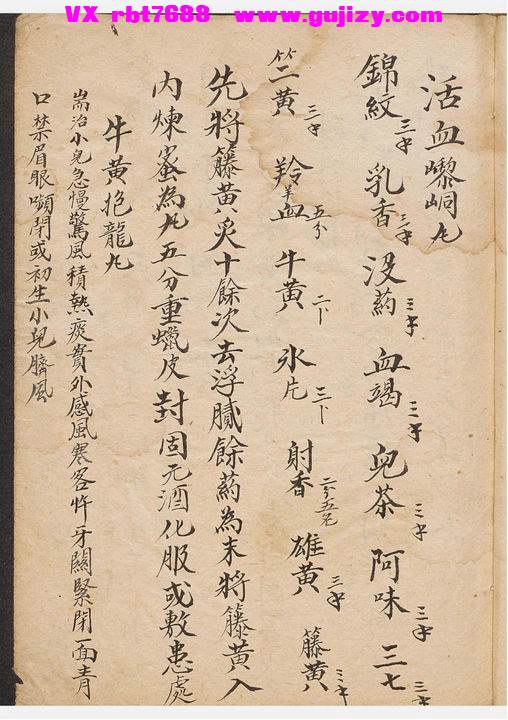 VX rbt7688 www.gujizy.com
活血嚟峒丸
錦紋三千 乳香三千 沒葯三千 血竭三千 兒茶三千 阿味三千 三七三千
竺黄三千 羚羊血五分 牛黄二卜 氷片三卜 射香二分五 雄黄三千 籐黄三千
先將籐黄炙十餘次去浮膩餘葯為末將籐黄入
內煉蜜為丸五分重蠟皮封固元酒化服或敷患處
牛黄抱龍丸
耑治小兒急慢驚風積熱痰實外感風寒客忤牙關緊閉面青
口禁眉眼嚬閉或初生小兒臍風